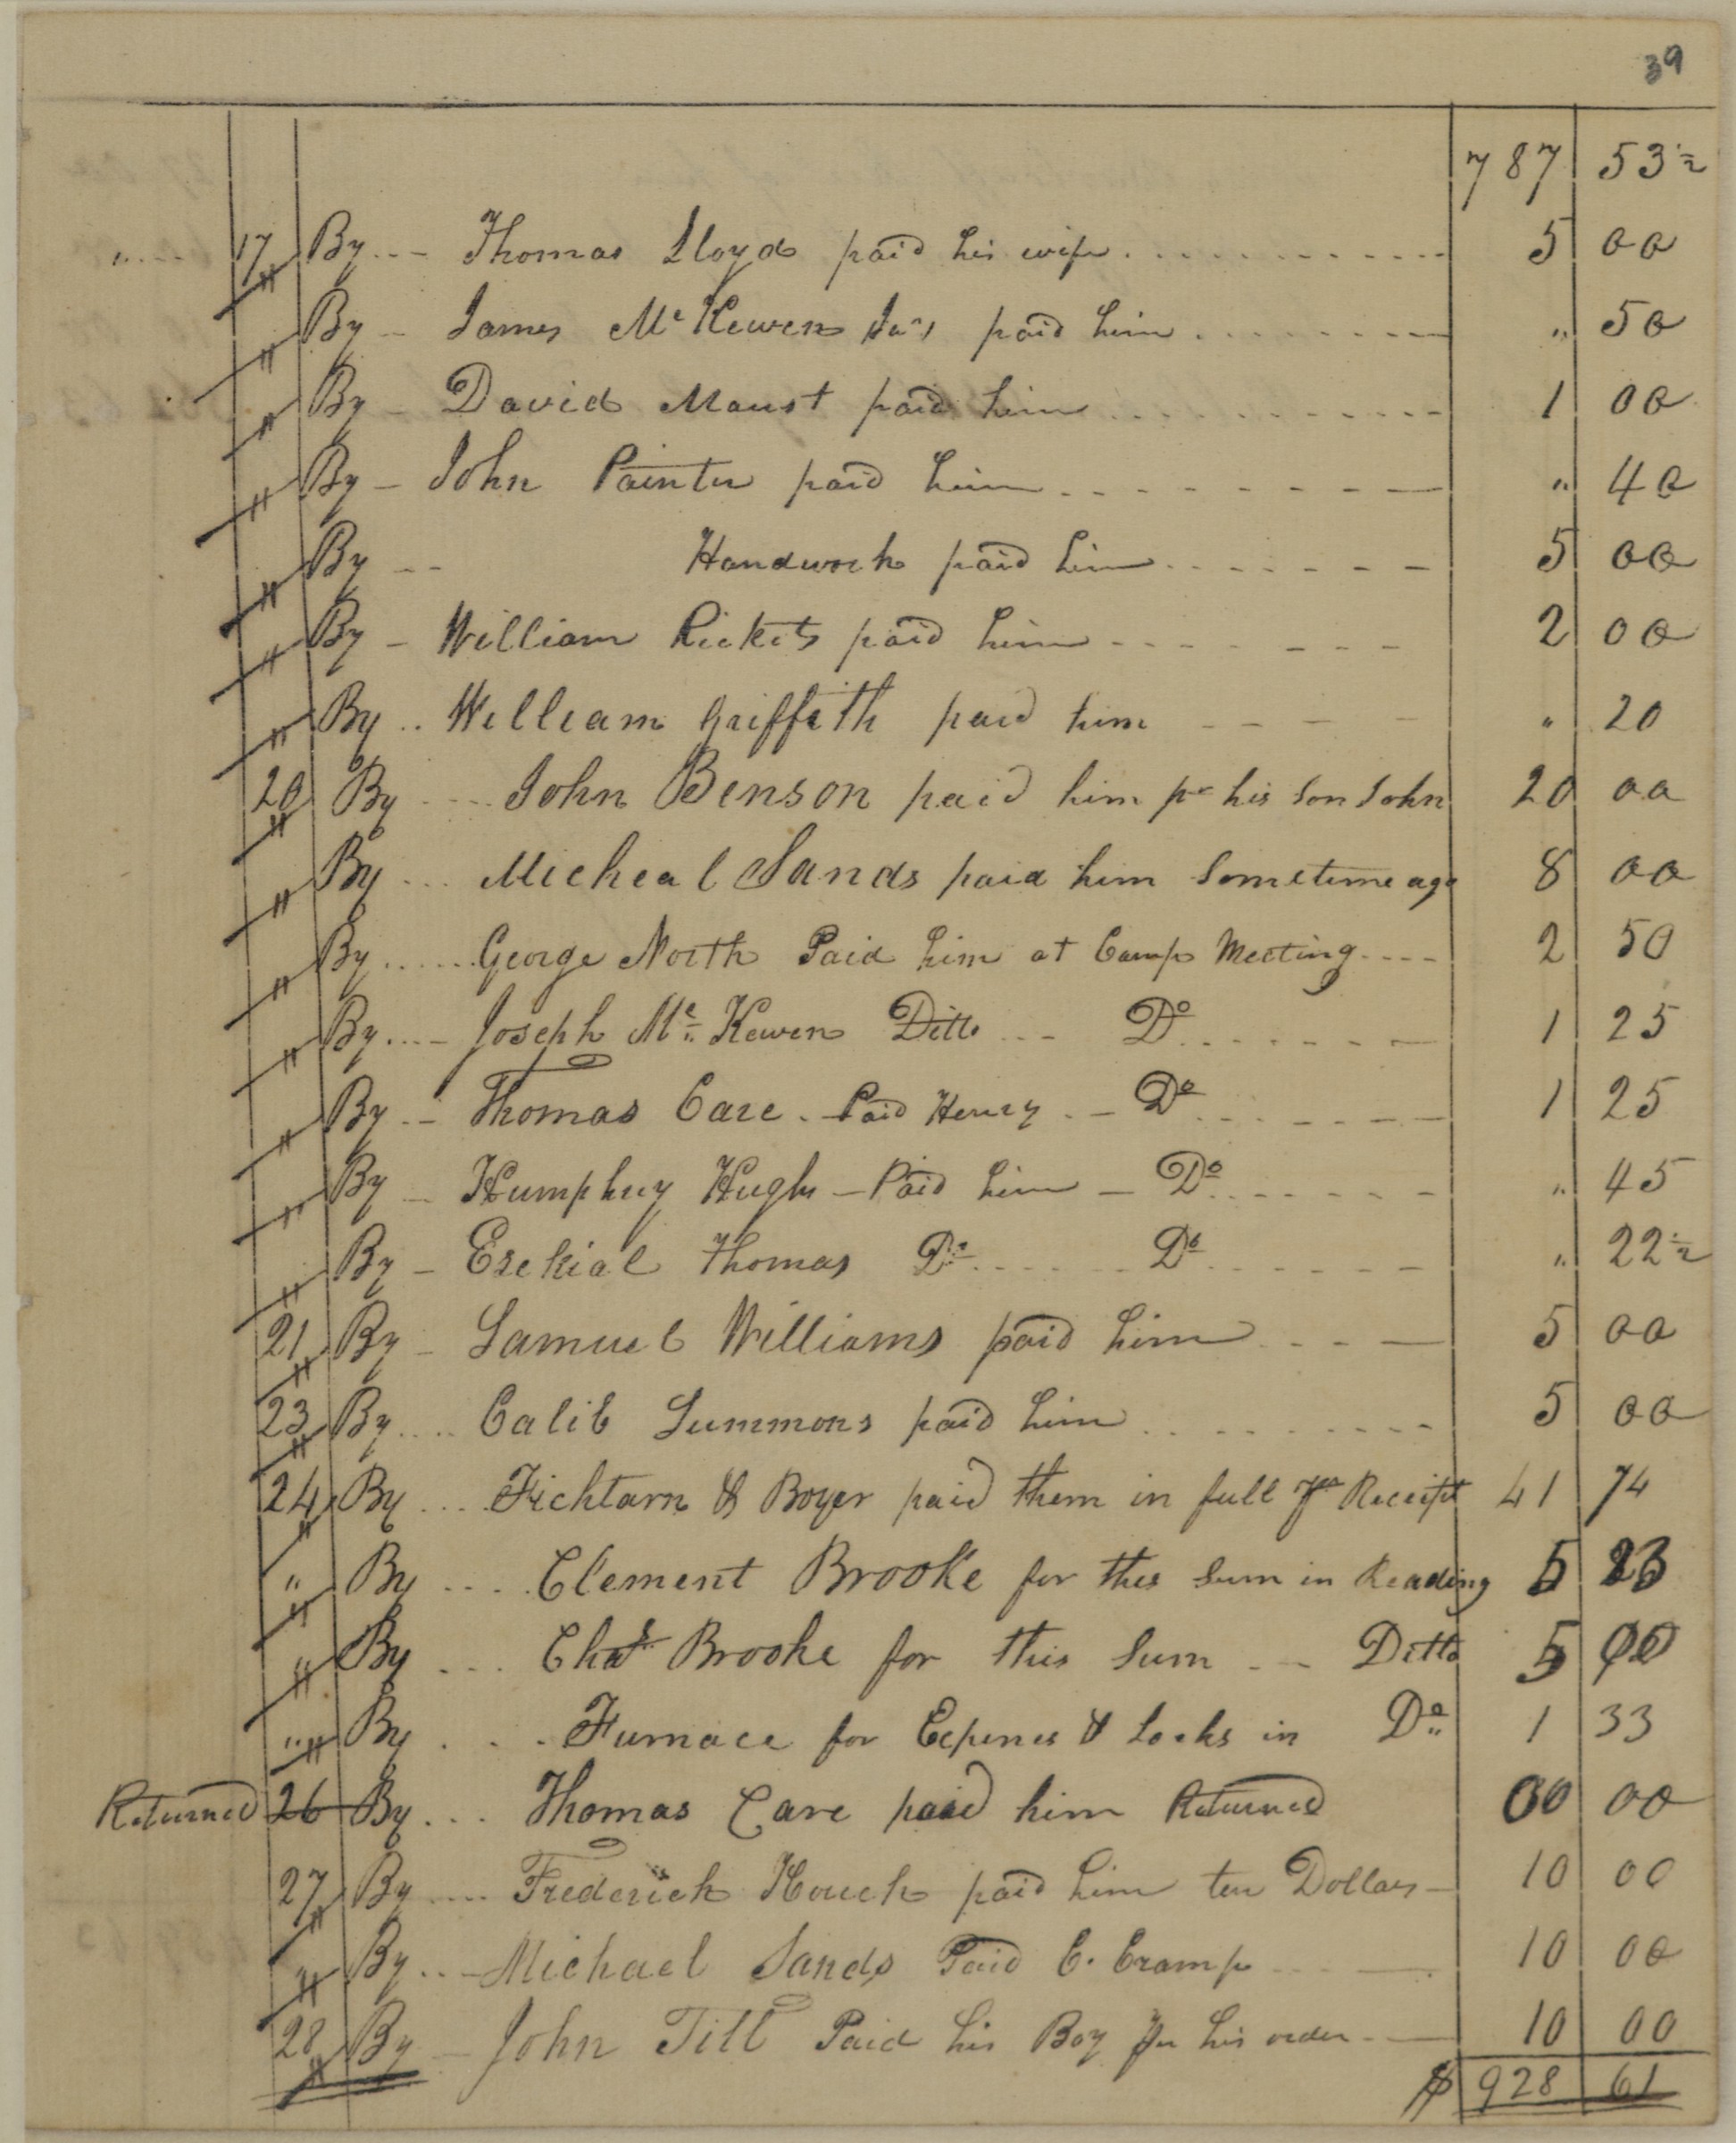 39
787 53 ½
17 By Thomas Lloyd paid his wife 5 00
" By James Mc Kewen Jun. paid him " 50
" By David Maust paid him 1 00
" By John Painter paid him " 40
" By Handwork paid him 5 00
" By William Rickets paid him 2 00
" By William Griffith paid him " 20
20 By John Benson paid him pr his Son John 20 00
" By Micheal Sands paid him Sometime ago 8 00
" By George North Paid him at Camp Meeting 2 50
" By Joseph Mc Kewen Ditto Do 1 25
" By Thomas Care Paid Henry Do 1 25
" By Humphrey Hughs Paid him Do " 45
" By Ezekial Thomas Do Do " 22 ½
21 By Samuel Williams paid him 5 00
23 By Calib Summons paid him 5 00
24 By Fichtarn & Boyer paid them in full pr Receipt 41 74
" By Clement Brooke for this Sum in Reading 5 23
" By Chas Brooke for this Sum Ditto 5 00
" By Furnace for Expenes & Locks in Do 1 33
Returned 26 By Thomas Care paid him Returned 00 00
27 By Frederick Houck paid him ten Dollars 10 00
" By Michael Sands Paid C. Cramp 10 00
28 By John Till Paid his Boy pr his order 10 00
$ 928 61